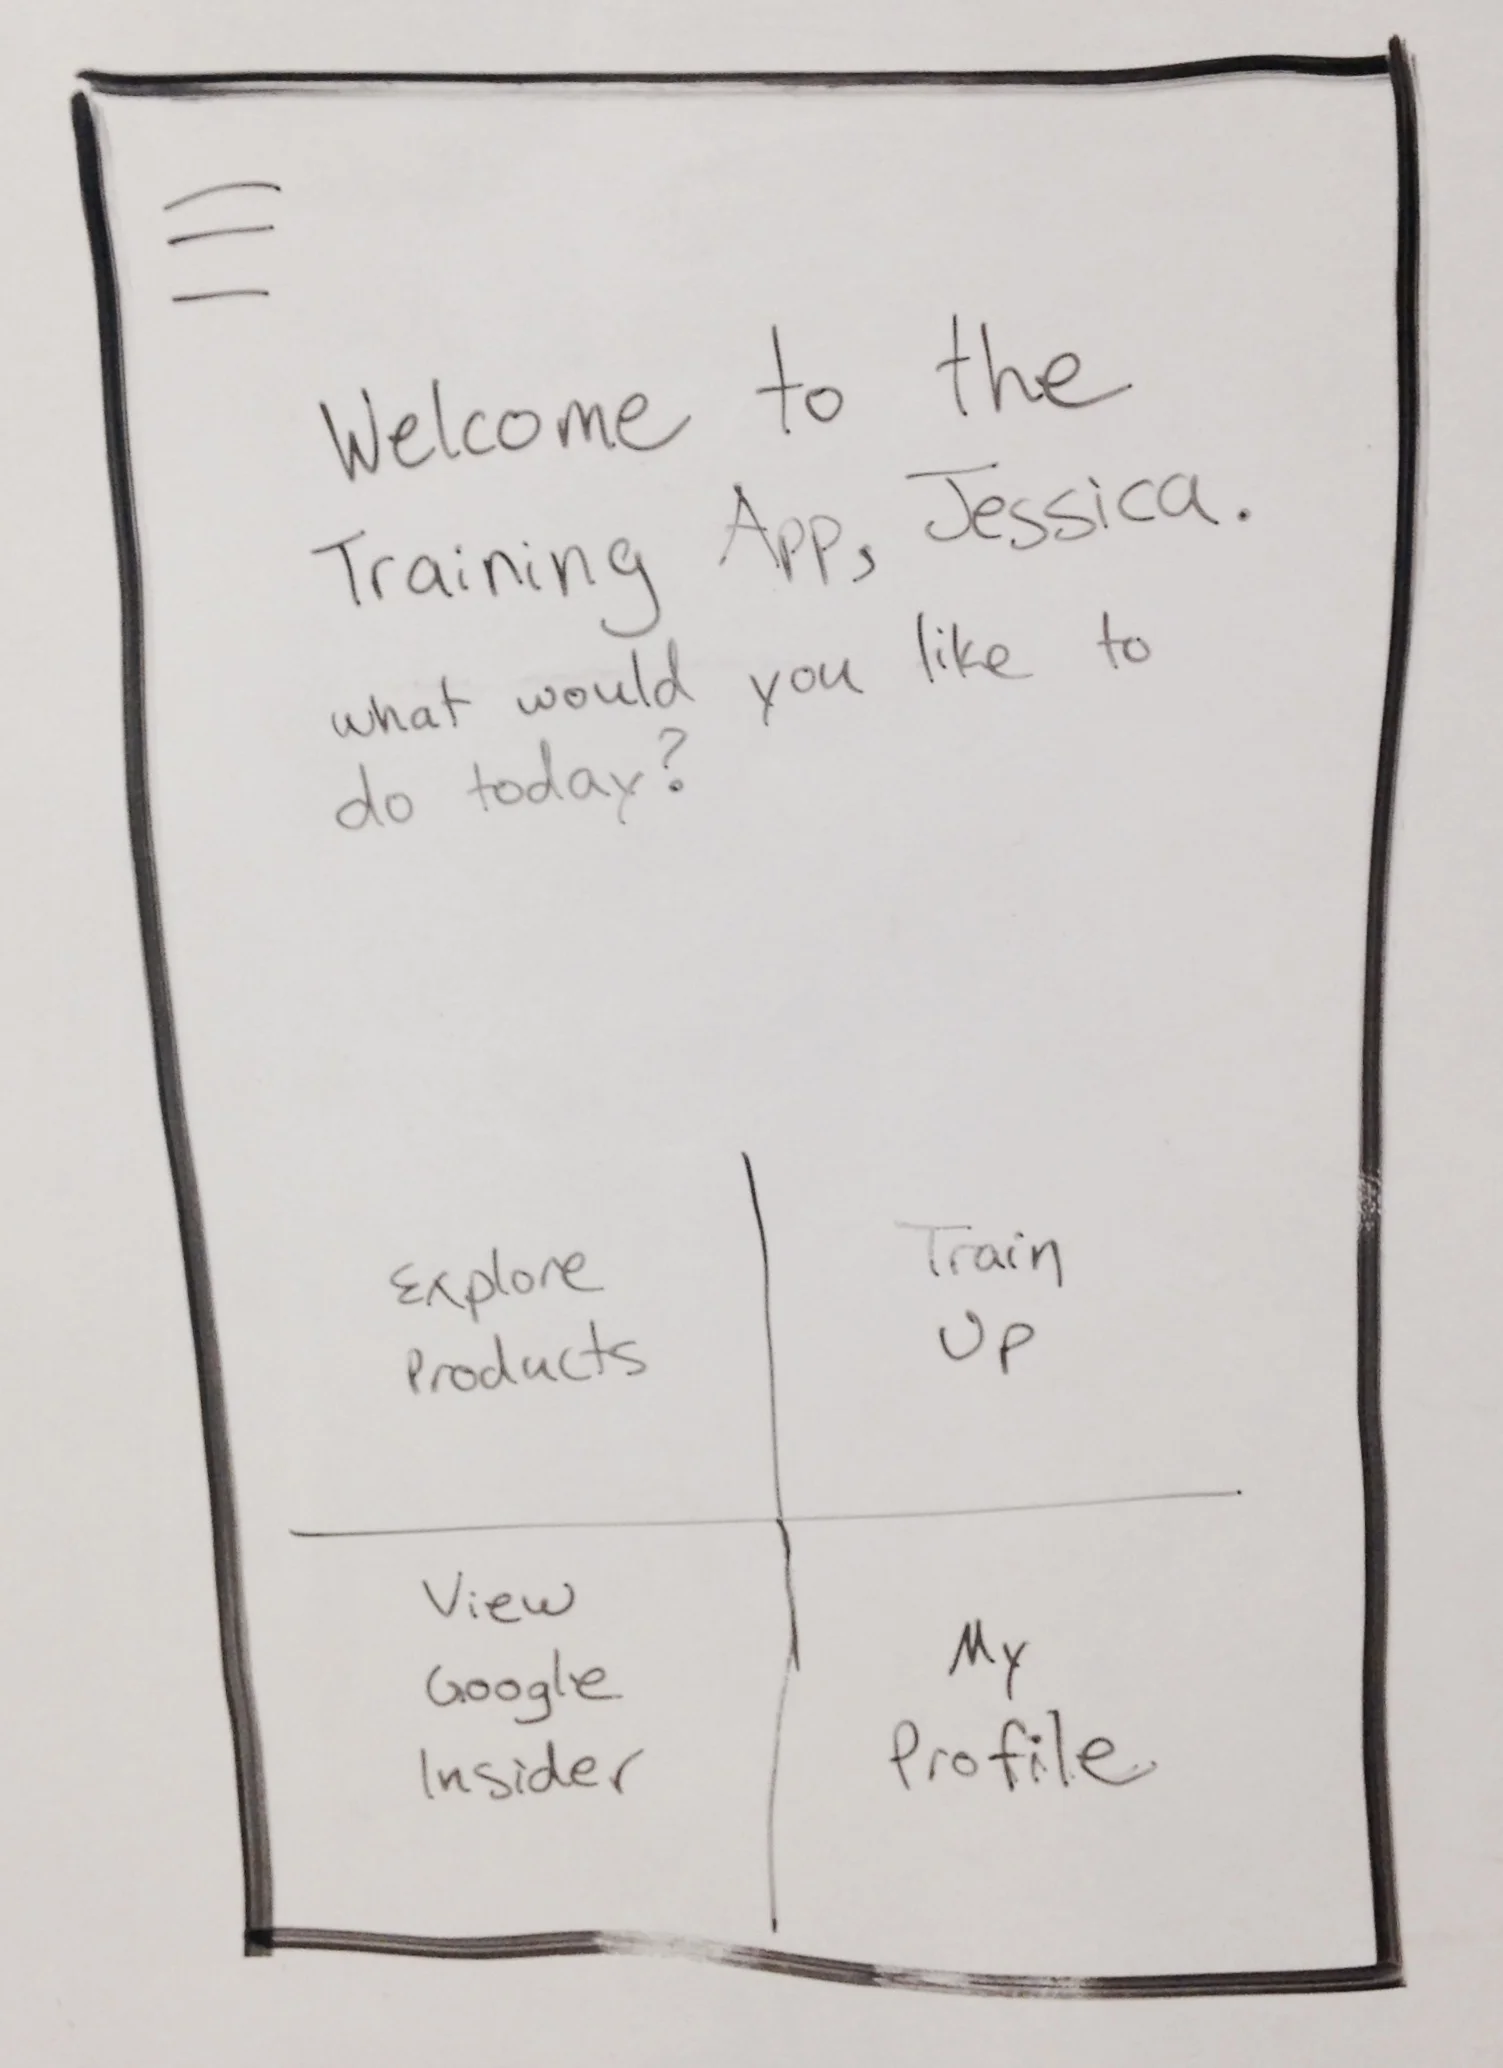 Welcome to the
Training App, Jessica.
what would you like to
do today?
Explore
Products
Train
Up
View
Google
Insider
My
Profile